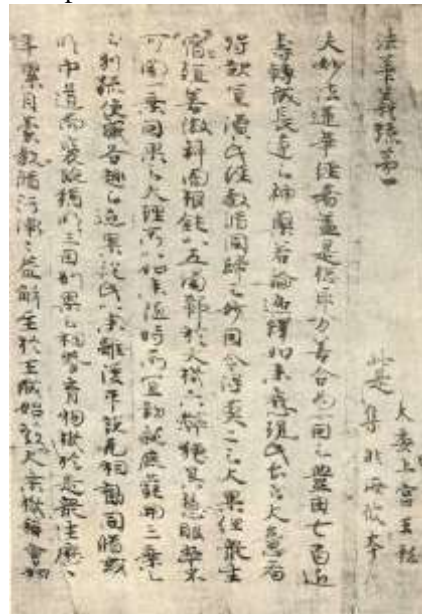 法華義疏第一
此是
大委上宮王私
集非海彼本
夫妙法蓮華経者蓋是惣取万善合為一因之豊田七百近
壽轉成長遠之神藥若論迦釋如来應現此土之大意者
将欲宜演此経教脩同歸之妙因令得莫二之大果但衆生
宿殖善微神闇根鈍以五濁鄣於大機六弊掩其慧眼卒不
可聞一乗因果之大理所以如来随時所宜初就鹿苑開三乗之
別疏使感各趣之近果従此以来雖復平說无相勸同脩或
明中道而褒貶猶明三因別果之相養育物機於是衆生歴
年累月蒙教脩行漸漸益解至於王城始發大乗機稱會如